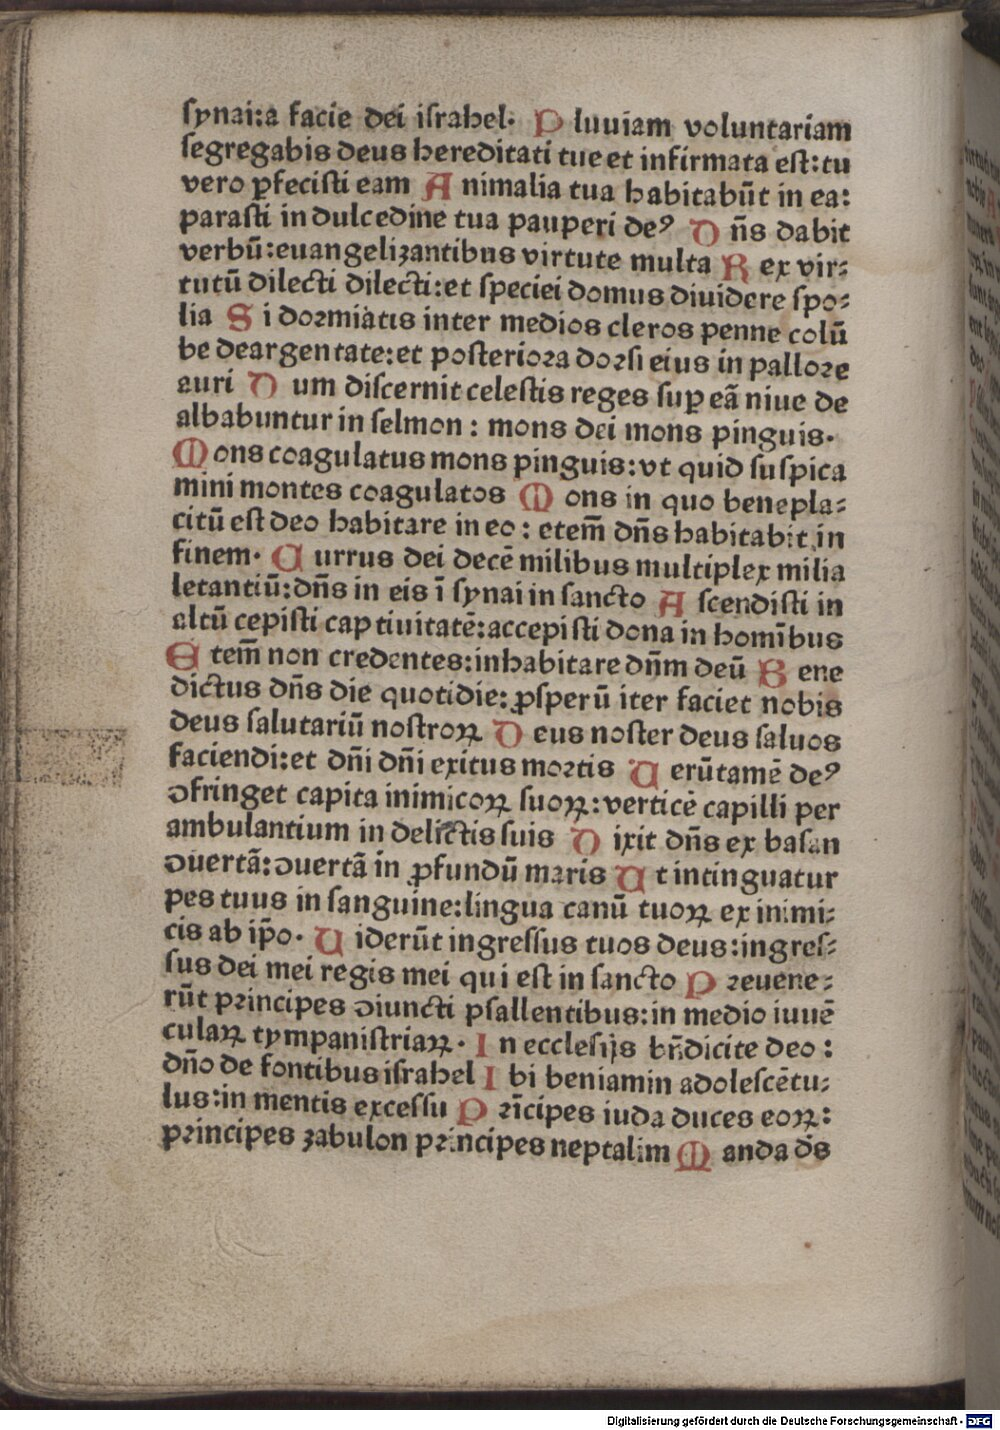 synai:a facie dei israhel. P luuiam voluntariam
segregabis deus hereditati tue et infirmata est:tu
vero ꝑfecisti eam A nimalia tua habitabūt in ea:
parasti in dulcedine tua pauperi deꝰ D ñs dabit
verbū:euangelizantibus virtute multa R ex vir⸗
tutū dilecti dilecti:et speciei domus diuidere spo⸗
lia S i dormiatis inter medios cleros penne colū
be deargentate:et posteriora dorsi eius in pallore
auri D um discernit celestis reges suꝑ eā niue de
albabuntur in selmon : mons dei mons pinguis.
M ons coagulatus mons pinguis:vt quid suspica
mini montes coagulatos M ons in quo benepla⸗
citū est deo habitare in eo : etem̄ dñs habitabit in
finem. C urrus dei decē milibus multiplex milia
letantiū:dñs in eis ī synai in sancto A scendisti in
altū cepisti captiuitatē:accepisti dona in homībus
E tem̄ non credentes:inhabitare dñm deū B ene
dictus dñs die quotidie:ꝓsperū iter faciet nobis
deus salutariū nostroꝝ D eus noster deus saluos
faciendi:et dñi dñi exitus mortis U erūtamē deꝰ
ꝯfringet capita inimicoꝝ suoꝝ:verticē capilli per
ambulantium in delictis suis D ixit dñs ex basan
ꝯuertā:ꝯuertā in ꝓfundū maris U t intinguatur
pes tuus in sanguine:lingua canū tuoꝝ ex inimi⸗
cis ab ip̄o. U iderūt ingressus tuos deus:ingres⸗
sus dei mei regis mei qui est in sancto P reuene⸗
rūt principes ꝯiuncti psallentibus:in medio iuuē
culaꝝ tympanistriaꝝ. I n ecclesijs bñdicite deo :
dño de fontibus israhel I bi beniamin adolescētu⸗
lus:in mentis excessu P rīcipes iuda duces eoꝝ:
principes zabulon principes neptalim M anda ds̄
Digitalisierung gefördert durch die Deutsche Forschungsgemeinschaft - DFG